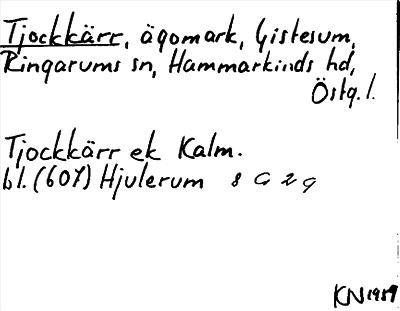 Tjockkärr, ägomark, Gistesum,
Ringarums sn, Hammarkinds hd,
Östg. l.
Tjockkärr ek Kalm.
bl. (607) Hjulerum 8 G 2 g
KN 1959